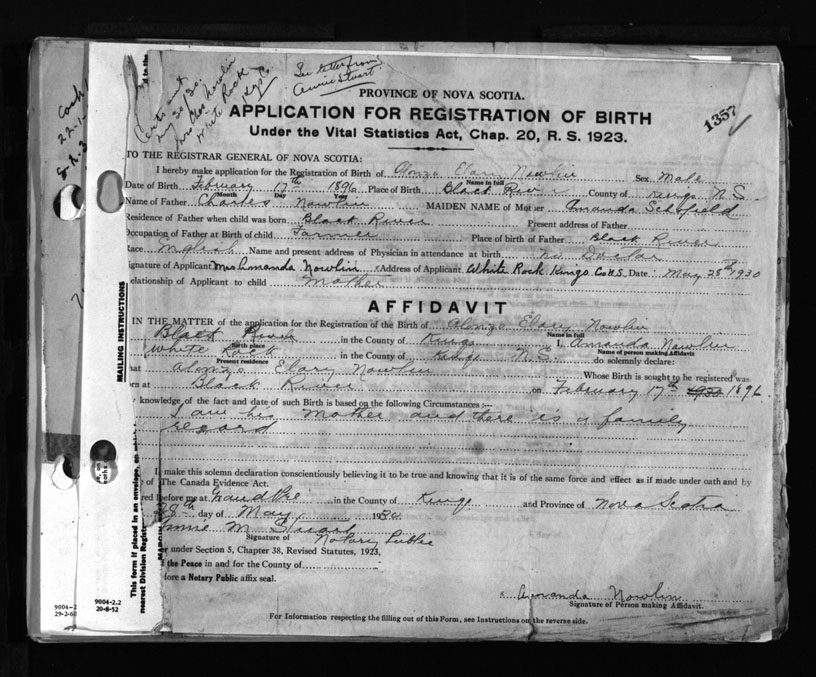 See letter from
Annie Stuart
Certs sent
Mrs Chas Nowlin
White Rock
Kgs Co.
1357
PROVINCE OF NOVA SCOTIA.
APPLICATION FOR REGISTRATION OF BIRTH
Under the Vital Statistics Act, Chap. 20, R. S. 1923.
TO THE REGISTRAR GENERAL OF NOVA SCOTIA:
I hereby make application for the Registration of Birth of Alonzo Elary Nowlin Sex Male
Name in full
Date of Birth February 17th 1896 Place of Birth Black River County of Kings N.S.
Month Day Year
Name of Father Charles Nowlin MAIDEN NAME of Mother Amanda Schofield
Residence of Father when child was born Black River Present address of Father
Occupation of Father at Birth of child Farmer Place of birth of Father Black River
Race English Name and present address of Physician in attendance at birth No Doctor
Signature of Applicant Mrs Amanda Nowlin Address of Applicant White Rock Kings Co N.S. Date: May 28th 1930
relationship of Applicant to child Mother
AFFIDAVIT
IN THE MATTER of the application for the Registration of the Birth of Alonzo Elary Nowlin
Black River in the County of Kings I, Amanda Nowlin
Birth place Name of person making Affidavit
White Rock in the County of Kings N.S. do solemnly declare:
Present residence
hat Alonzo Elary Nowlin Whose Birth is sought to be registered was
orn at Black River on February 17th 1896
y knowledge of the fact and date of such Birth is based on the following Circumstances:—
I am his Mother and there is a family
record
I make this solemn declaration conscientiously believing it to be true and knowing that it is of the same force and effect as if made under oath and by
e of The Canada Evidence Act.
red before me at Grand Pre in the County of Kings and Province of Nova Scotia
28th day of May 1930
Annie M Stuart
Signature of Notary Public
er under Section 5, Chapter 38, Revised Statutes, 1923,
f the Peace in and for the County of
fore a Notary Public affix seal.
Amanda Nowlin
Signature of Person making Affidavit.
For Information respecting the filling out of this Form, see Instructions on the reverse side.
MAILING INSTRUCTIONS
This form if placed in an envelope,
nearest Division Regist
9004-2
29-2-60
9004-2.2
20-8-52